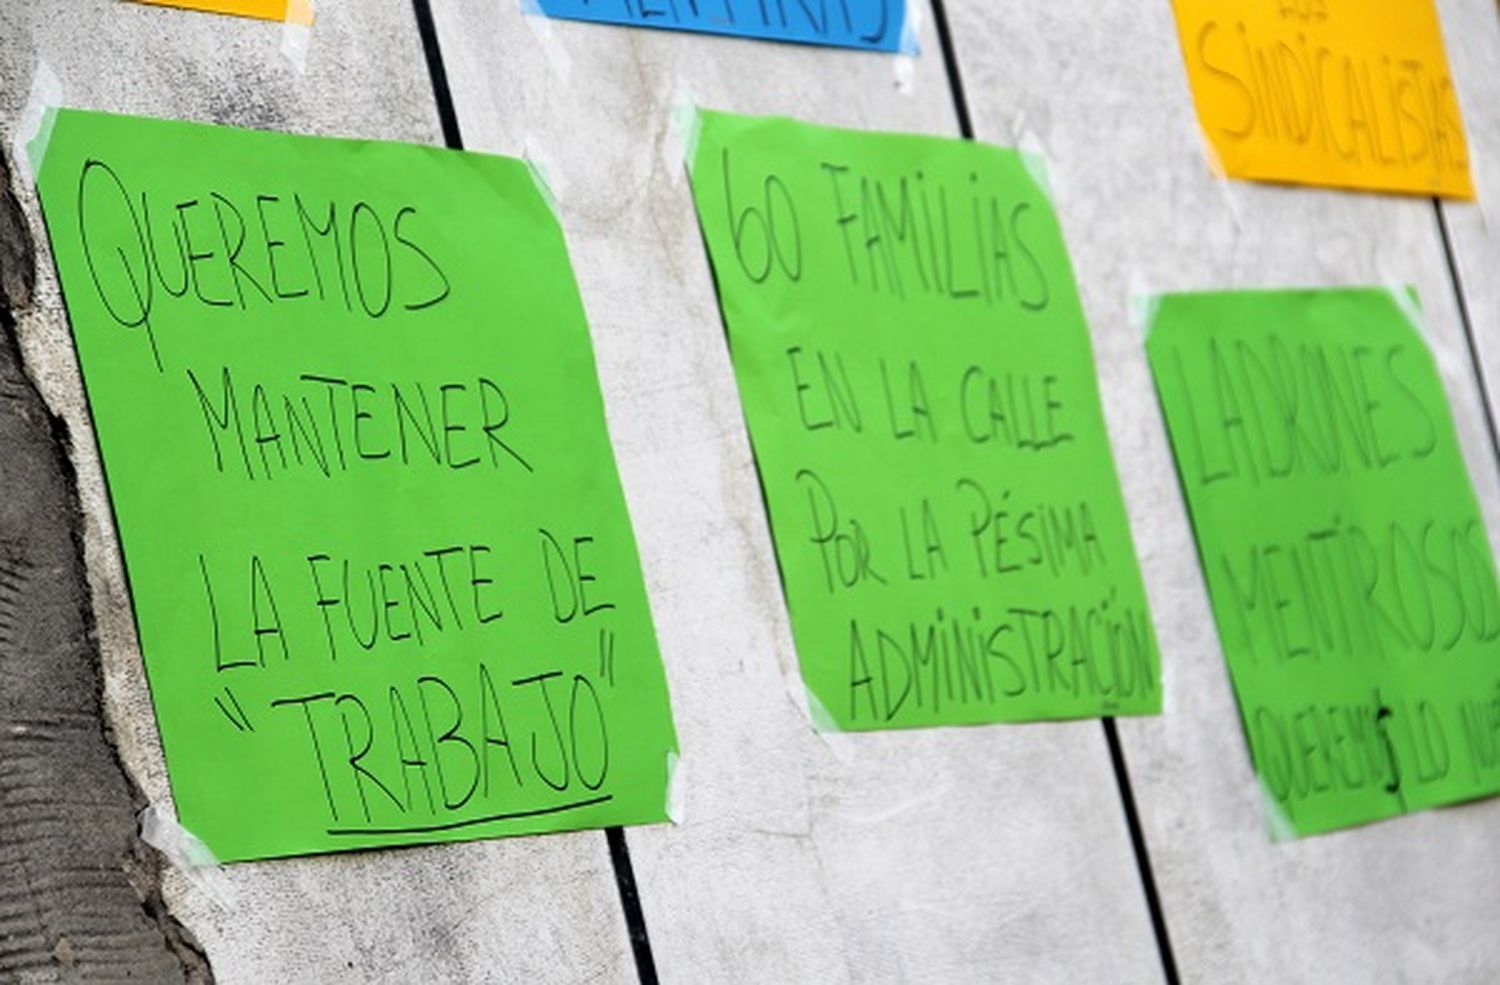 MENTIRAS
SINDICALISTAS
QUEREMOS
MANTENER
LA FUENTE DE
"TRABAJO"
60 FAMILIAS
EN LA CALLE
POR LA PÉSIMA
ADMINISTRACIÓN
LADRONES
MENTIROSOS
QUEREMOS LO